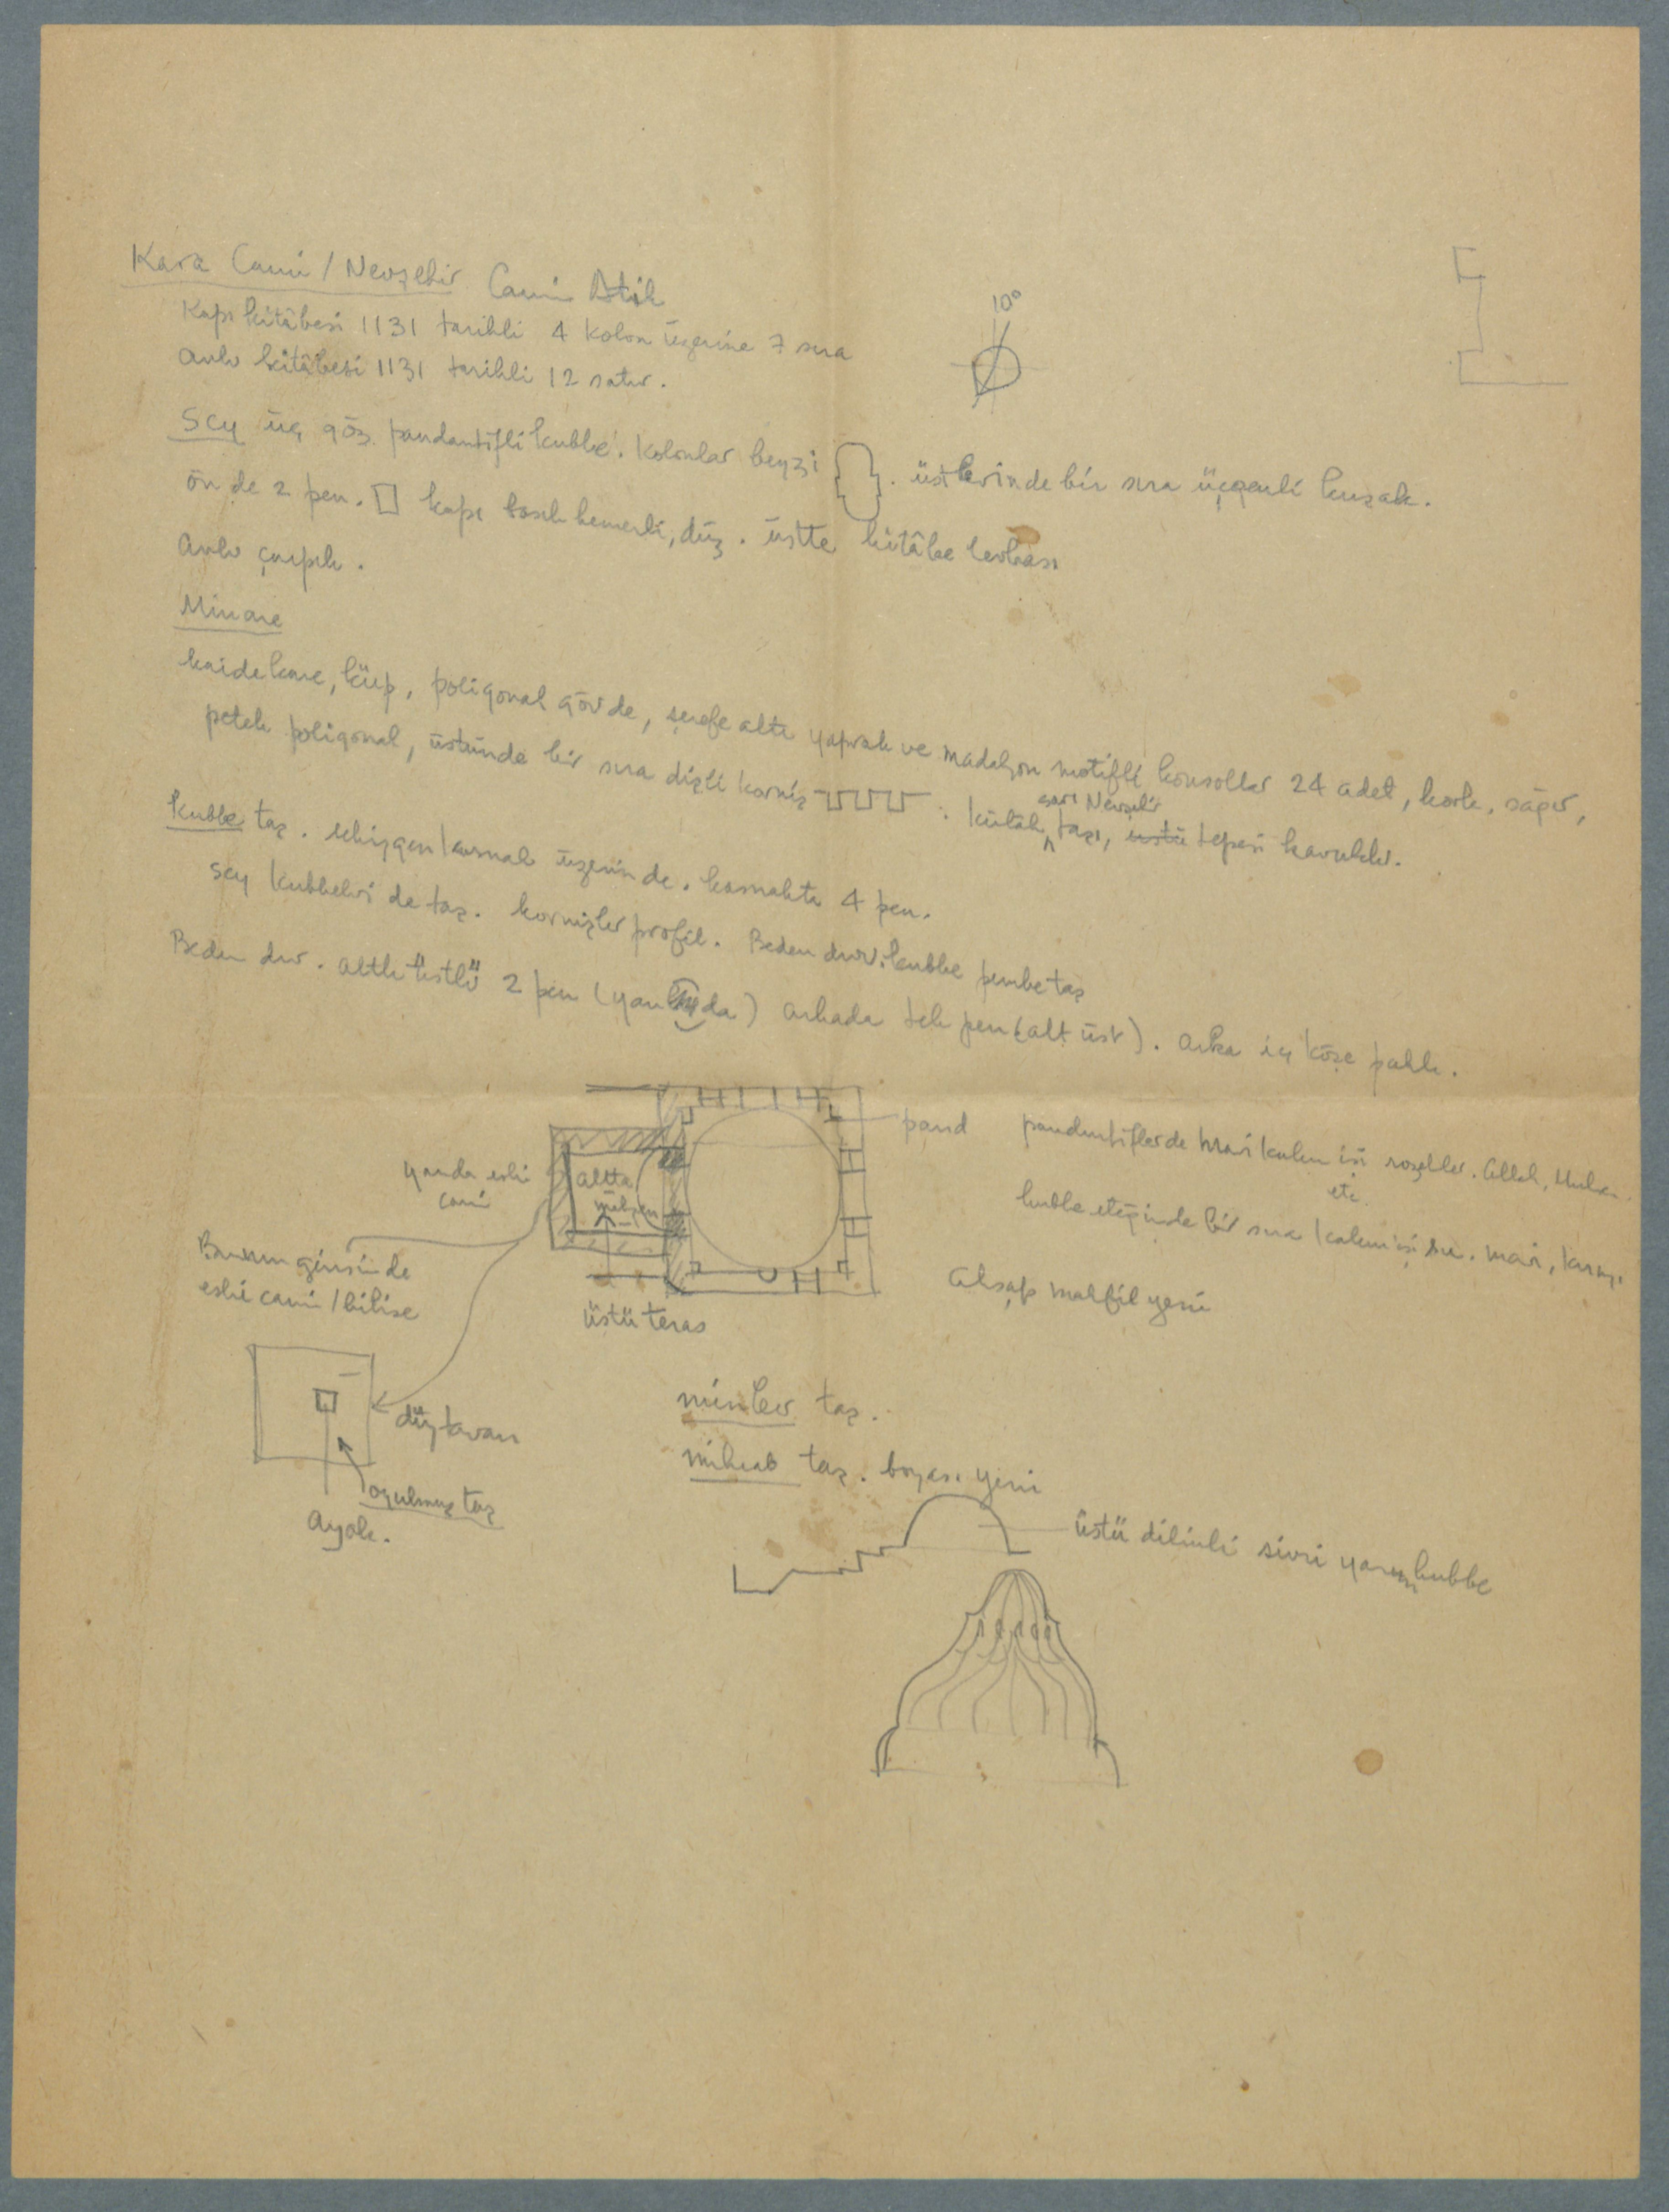 Kara Cami / Nevşehir Cami Atik
Kapı kitâbesi 1131 tarihli 4 kolon üzerine 7 sıra
avlu kitâbesi 1131 tarihli 12 satır.
10°
SCY üç göz. pandantifli kubbe. kolonlar beyzi . üstlerinde bir sıra üçgenli kuşak.
önde 2 pen. kapı basık kemerli, düz. üstte kitâbe levhası
avlu çarpık.
Minare
kaide kare, küp, poligonal gövde, şerefe altı yaprak ve madalyon motifli konsollar 24 adet, kork. sağır,
petek poligonal, üstünde bir sıra dişli korniş . külâh sarı Nevşehir taşı, üstü tepesi kavuklu.
Kubbe taş. sekizgen kasnak üzerinde. kasnakta 4 pen.
SCY kubbeleri de taş. kornişler profil. Beden duv. kubbe pembe taş
Beden duv. altlı üstlü 2 pen (yanlarda) arkada tek pen (alt üst). arka iç köşe pahlı.
pand
pandantiflerde mavi kalem işi rozetler. Allah, Muh..
etc.
yanda eski
cami
altta
mahzen
kubbe eteğinde bir sıra kalem işi su. mavi, kırmızı
Bunun girişinde
eski cami / kilise
Ahşap mahfil yeni
üstü teras
düz tavan
oyulmuş taş
ayak.
minber taş.
mihrab taş. boyası yeni
üstü dilimli sivri yarım kubbe